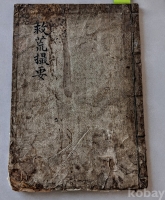 救荒撮要
kobay